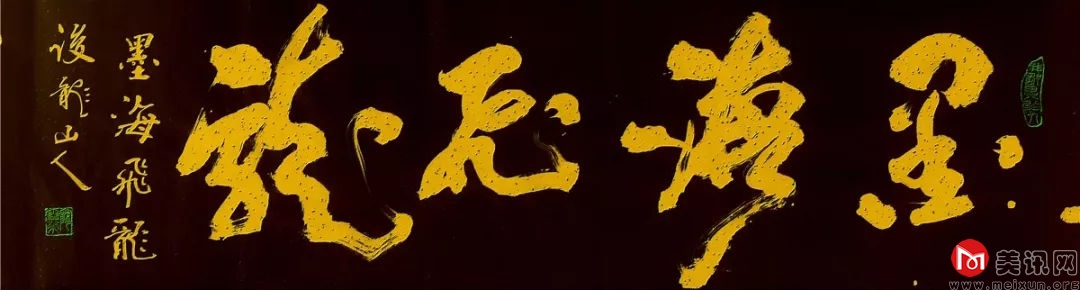 墨海飛龍
墨海飛龍
俊龍山人
美讯网
www.meixun.org